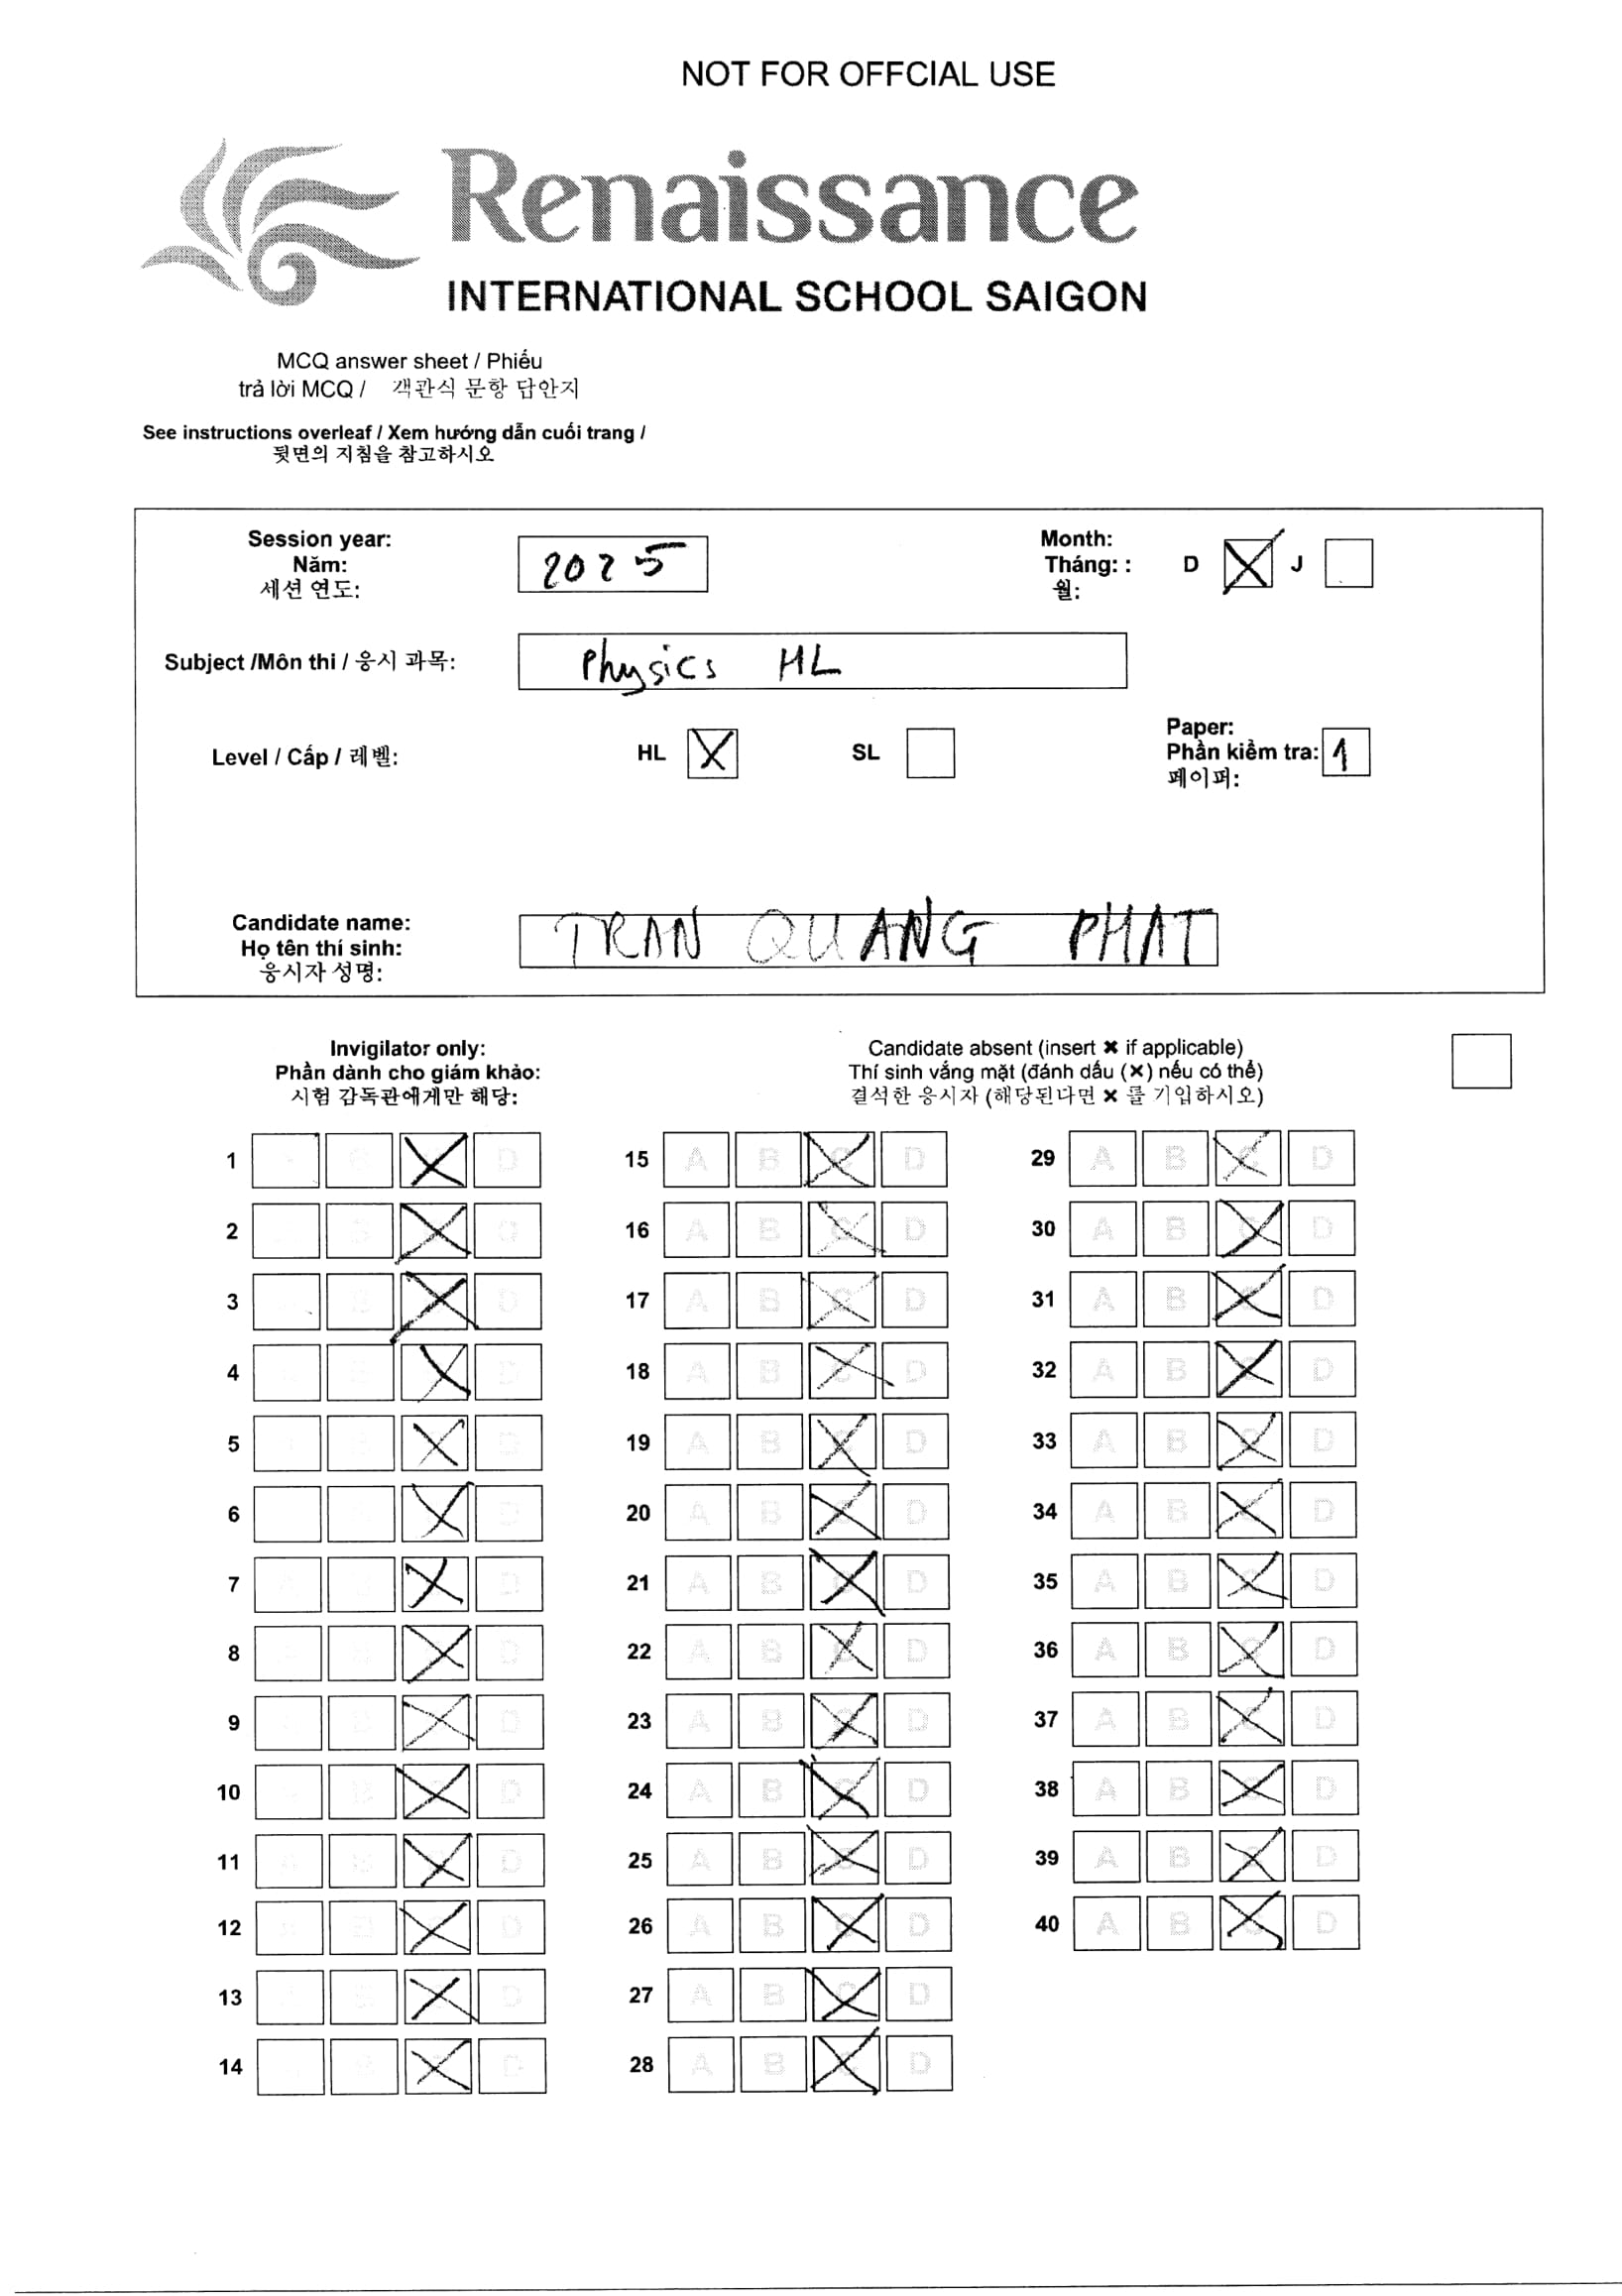 NOT FOR OFFCIAL USE
Renaissance
INTERNATIONAL SCHOOL SAIGON
MCQ answer sheet / Phiếu
trả lời MCQ / 객관식 문항 답안지
See instructions overleaf / Xem hướng dẫn cuối trang /
뒷면의 지침을 참고하시오
Session year:
Năm:
세션 연도:
2025
Month:
Tháng: :
월:
D X J
Subject /Môn thi / 응시 과목:
Physics HL
Level / Cấp / 레벨:
HL X SL
Paper:
Phần kiểm tra:
페이퍼:
1
Candidate name:
Họ tên thí sinh:
응시자 성명:
TRAN QUANG PHAT
Invigilator only:
Phần dành cho giám khảo:
시험 감독관에게만 해당:
Candidate absent (insert ✖ if applicable)
Thí sinh vắng mặt (đánh dấu (✖) nếu có thể)
결석한 응시자 (해당된다면 ✖ 를 기입하시오)
1 X D
2 B X D
3 B X D
4 X D
5 X D
6 X D
7 X D
8 X D
9 B X D
10 B X D
11 B X D
12 B X D
13 B X D
14 B X D
15 A B X D
16 A B X D
17 A B X D
18 A B X D
19 A B X D
20 A B X D
21 A B X D
22 A B X D
23 A B X D
24 A B X D
25 A B X D
26 A B X D
27 A B X D
28 A B X D
29 A B X D
30 A B X D
31 A B X D
32 A B X D
33 A B X D
34 A B X D
35 A B X D
36 A B X D
37 A B X D
38 A B X D
39 A B X D
40 A B X D